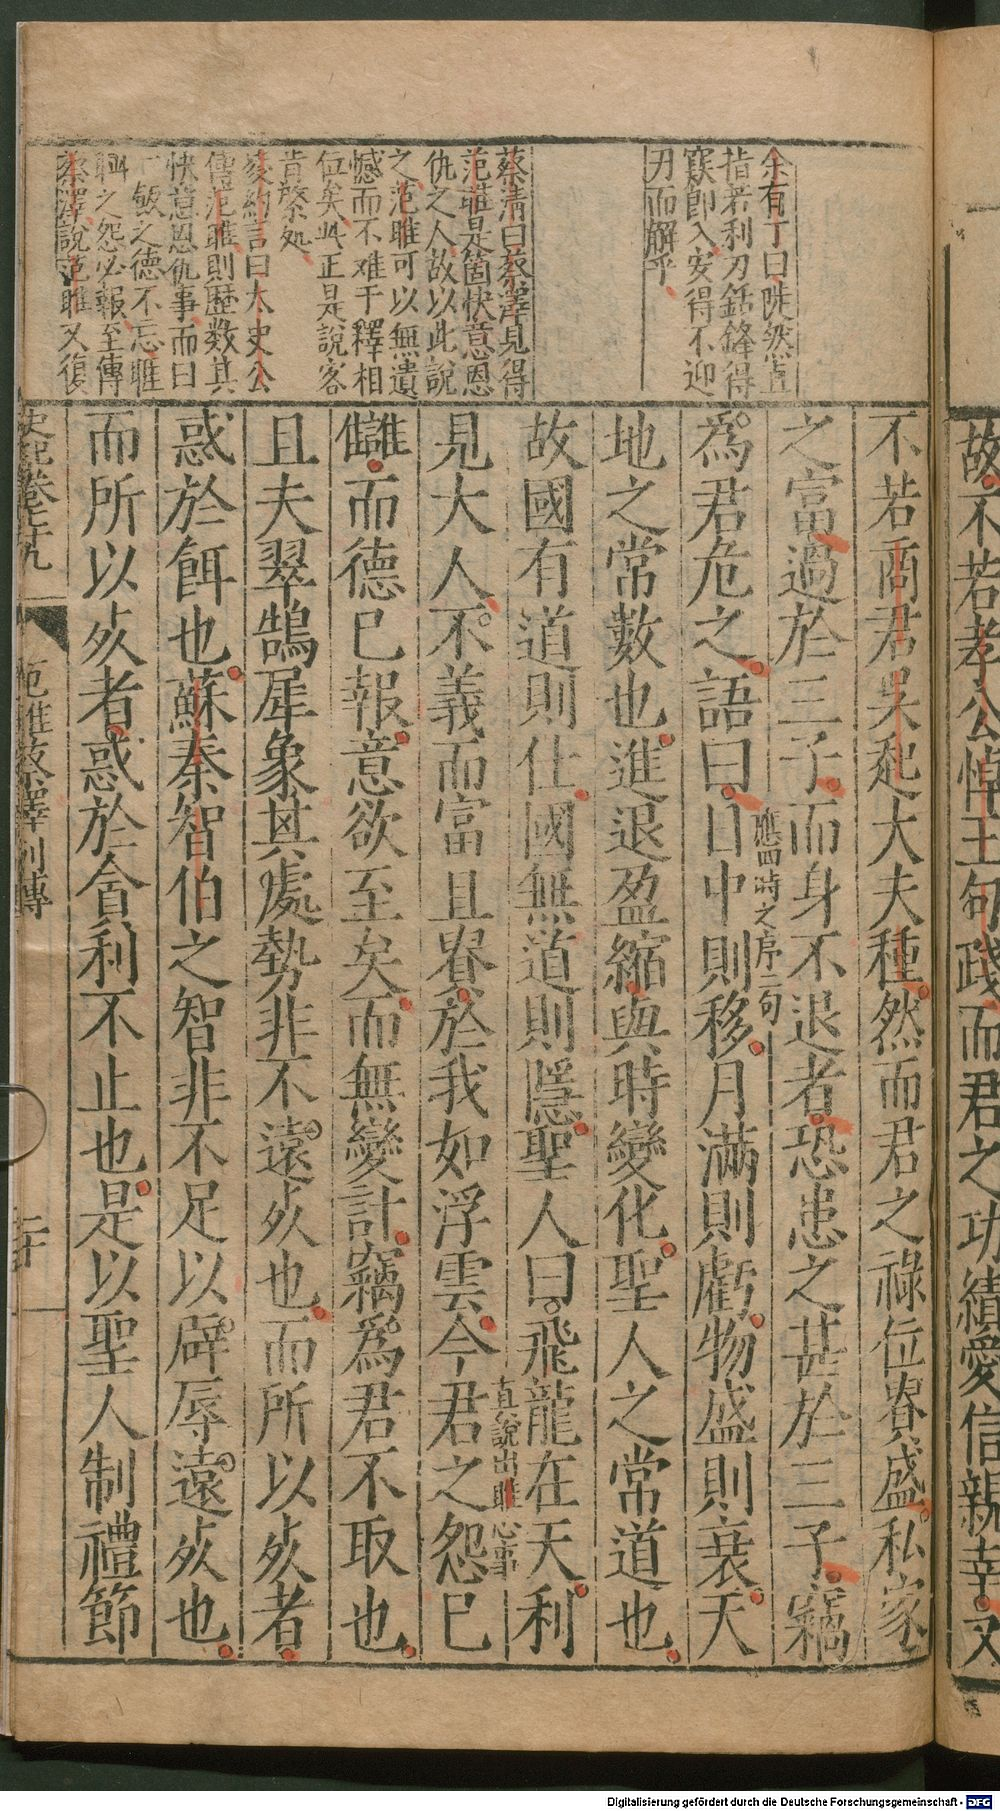 故不若孝公悼王句踐而君之功績愛信親幸又
余有丁曰陡然直
指若利刀銛鋒得
窾卽入安得不迎
刃而解乎
蔡淸曰蔡澤見得
范雎是箇快意恩
仇之人故以此說
之范雎可以無遺
憾而不难于釋相
位矣此正是說客
肯綮处
凌約言曰太史公
傳范雎則歷数其
快意恩仇事而曰
一飯之德不忘睚
眦之怨必報至傳
蔡澤說范雎又復
不若商君吳起大夫種然而君之祿位貴盛私家
之富過於三子而身不退者恐患之甚於三子竊
應四時之序二句
爲君危之語曰日中則移月滿則虧物盛則衰天
地之常數也進退盈縮與時變化聖人之常道也
故國有道則仕國無道則隱聖人曰飛龍在天利
直說出雎心事
見大人不義而富且貴於我如浮雲今君之怨已
讎而德已報意欲至矣而無變計竊爲君不取也
且夫翠鵠犀象其處勢非不遠死也而所以死者
惑於餌也蘇秦智伯之智非不足以辟辱遠死也
而所以死者惑於貪利不止也是以聖人制禮節
史記卷七十九
范雎蔡澤列傳
二十
Digitalisierung gefördert durch die Deutsche Forschungsgemeinschaft - DFG